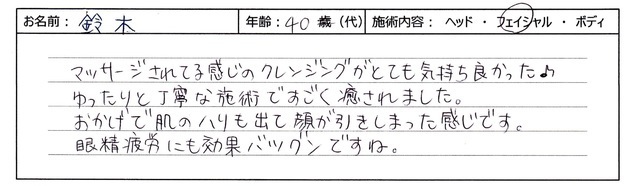 お名前： 鈴木 年齢：40歳（代） 施術内容： ヘッド ・ フェイシャル ・ ボディ
マッサージされてる感じのクレンジングがとても気持ち良かった♪
ゆったりと丁寧な施術ですごく癒されました。
おかげで肌のハリも出て顔が引きしまった感じです。
眼精疲労にも効果バツグンですね。